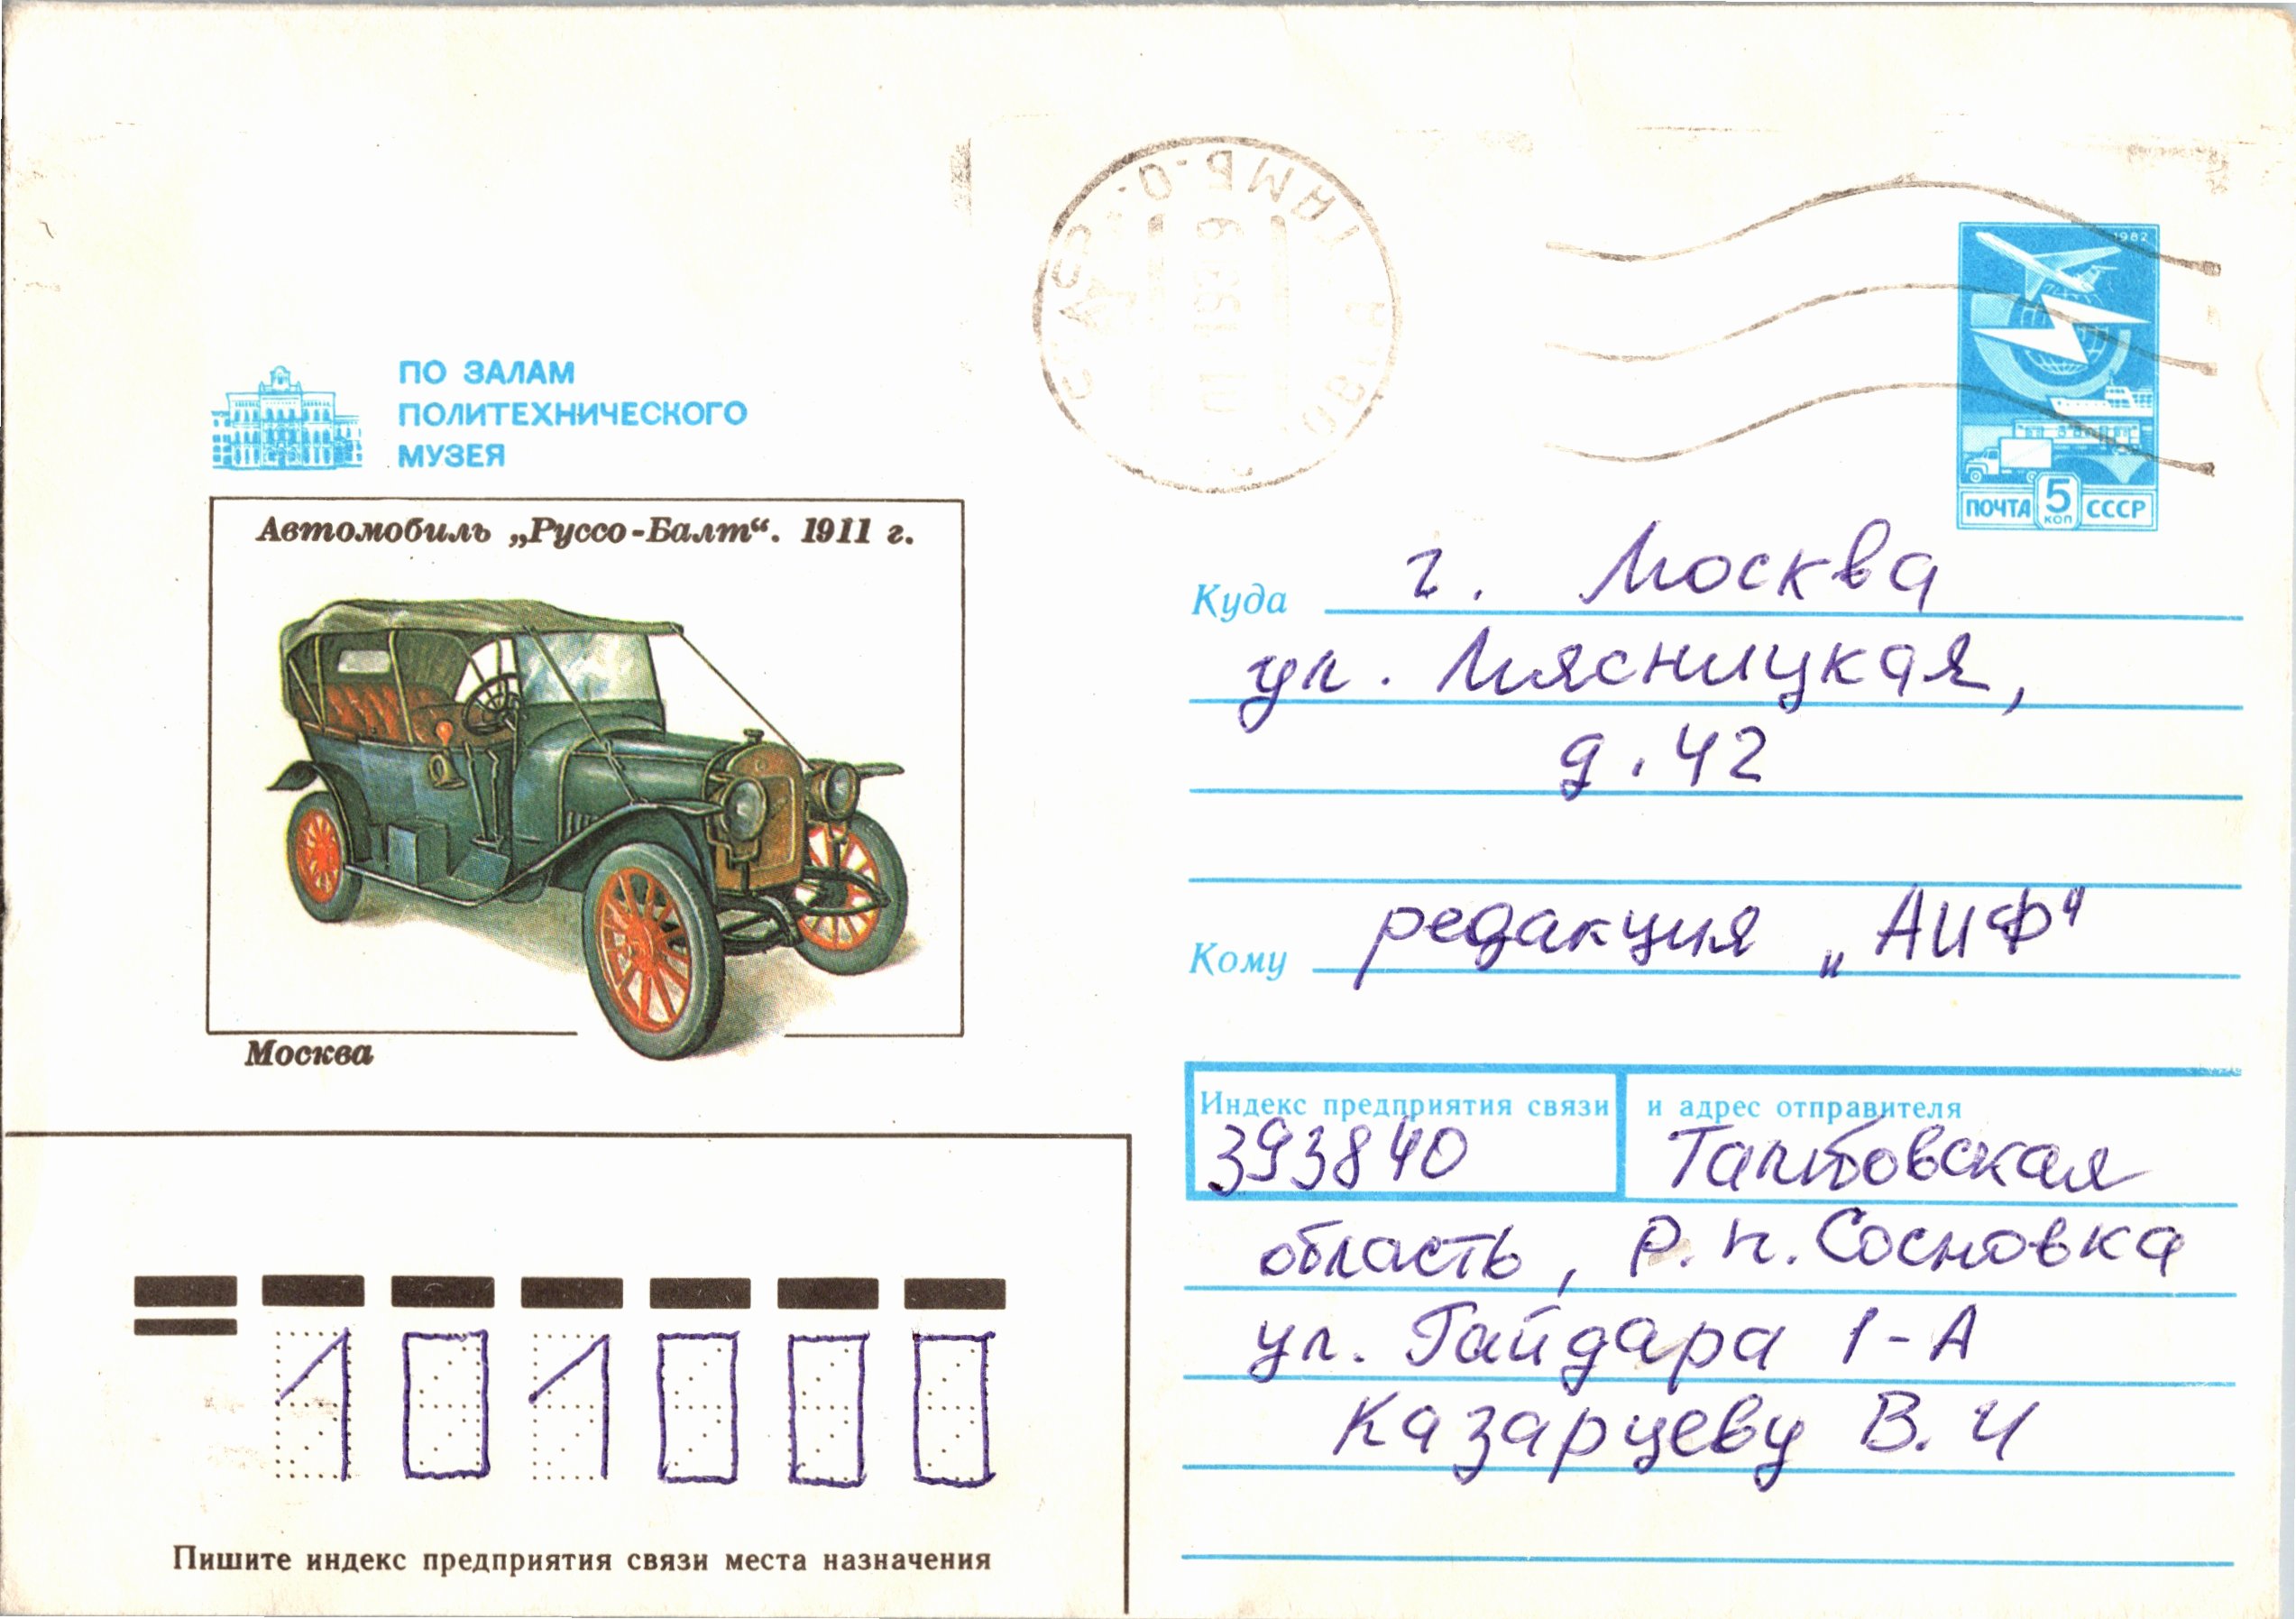 ПО ЗАЛАМ
ПОЛИТЕХНИЧЕСКОГО
МУЗЕЯ
Автомобиль „Руссо-Балт“. 1911 г.
Москва
1982
ПОЧТА 5 КОП СССР
Куда г. Москва
ул. Мясницкая,
д. 42
Кому редакция „АИФ"
Индекс предприятия связи и адрес отправителя
393840 Тамбовская
область, р.п. Сосновка
ул. Гайдара 1-А
Казарцеву В. И
101000
Пишите индекс предприятия связи места назначения